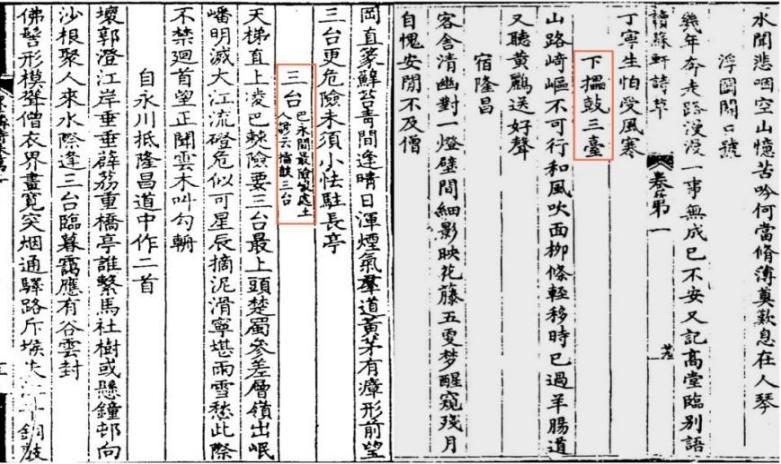 水聞悲咽空山憶苦吟何當脩薄奠歎息在人琴
浮圖關口號
幾年奔走路漫漫一事無成已不安又記高堂臨別語
讀蘇軒詩草 卷第一
丁寧生怕受風寒
下搵鼓三臺
山路崎嶇不可行和風吹面柳條輕移時已過羊腸道
又聽黃鸝送好聲
宿隆昌
客舍清幽對一燈壁間細影映花藤五更梦醒窺殘月
自愧安閒不及僧
岡直篆蘚苔青間逢晴日渾煙氣羣道黃茅有瘴形前望
三台更危險未須小怯駐長亭
三台 巴永間最險處土
人諺云擂鼓三台
天梯直上凌巴棘險要三台最上頭楚蜀參差層嶺出岷
嶓明滅大江流磴危似可星辰摘泥滑寧堪雨雪愁此際
不禁迴首望正聞雲木叫勾輈
自永川抵隆昌道中作二首
壞郭澄江岸垂垂薜荔重橋亭誰繫馬社樹或懸鐘邨向
沙根聚人來水際逢三台臨暮靄應有谷雲封
佛髻形模聳僧衣界畫寬突烟通驛路斥堠失銅鼓